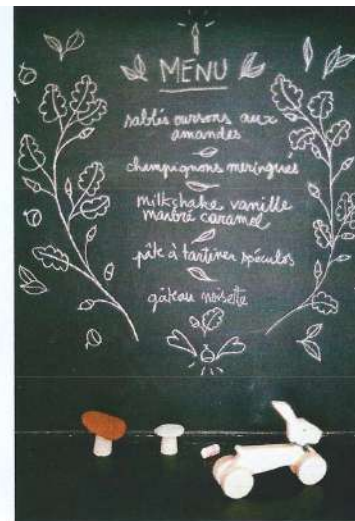 MENU
sablés oursons aux
amandes
champignons meringués
milkshake vanille
marbré caramel
pâte à tartiner spéculos
gâteau noisette